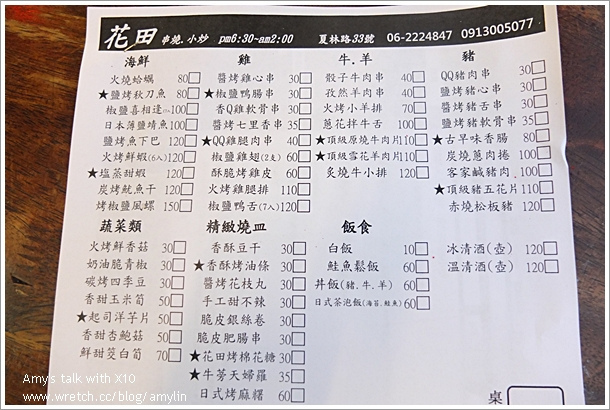 花田 串燒.小炒 pm6:30~am2:00 夏林路33號 06-2224847 0913005077
海鮮
火燒蛤蠣 80
★鹽烤秋刀魚 80
椒鹽喜相逢 100
日本薄鹽鯖魚 100
鹽烤魚下巴 120
火烤鮮蝦(6入) 120
★塩蒸甜蝦 120
炭烤魷魚干 120
烤椒鹽風螺 150
雞
醬烤雞心串 30
★椒鹽鴨腸串 30
香Q雞軟骨串 30
醬烤七里香串 35
★QQ雞腿肉串 40
椒鹽雞翅(2支) 60
酥脆烤雞皮 60
火烤雞腿排 110
椒鹽鴨舌(7入) 120
牛.羊
骰子牛肉串 40
孜然羊肉串 40
火烤小羊排 70
蔥花拌牛舌 100
★頂級原燒牛肉片 110
★頂級雪花羊肉片 110
炙燒牛小排 120
豬
QQ豬肉串 30
鹽烤豬心串 30
醬烤豬舌串 30
鹽烤豬軟骨串 35
★古早味香腸 80
炭燒蔥肉捲 100
客家鹹豬肉 100
★頂級豬五花片 110
赤燒松板豬 120
蔬菜類
火烤鮮香菇 30
奶油脆青椒 30
碳烤四季豆 30
香甜玉米筍 50
★起司洋芋片 50
香甜杏鮑菇 50
鮮甜筊白筍 70
精緻燒皿
香酥豆干 30
★香酥烤油條 30
醬烤花枝丸 30
手工甜不辣 30
脆皮銀絲卷 30
脆皮肥腸串 30
★花田烤棉花糖 30
★牛蒡天婦羅 35
日式烤麻糬 60
飯食
白飯 10
鮭魚鬆飯 60
丼飯(豬.牛.羊) 60
日式茶泡飯(海苔.鮭魚) 60
冰清酒(壺) 120
溫清酒(壺) 120
桌
Amy's talk with X10
www.wretch.cc/blog/amylin